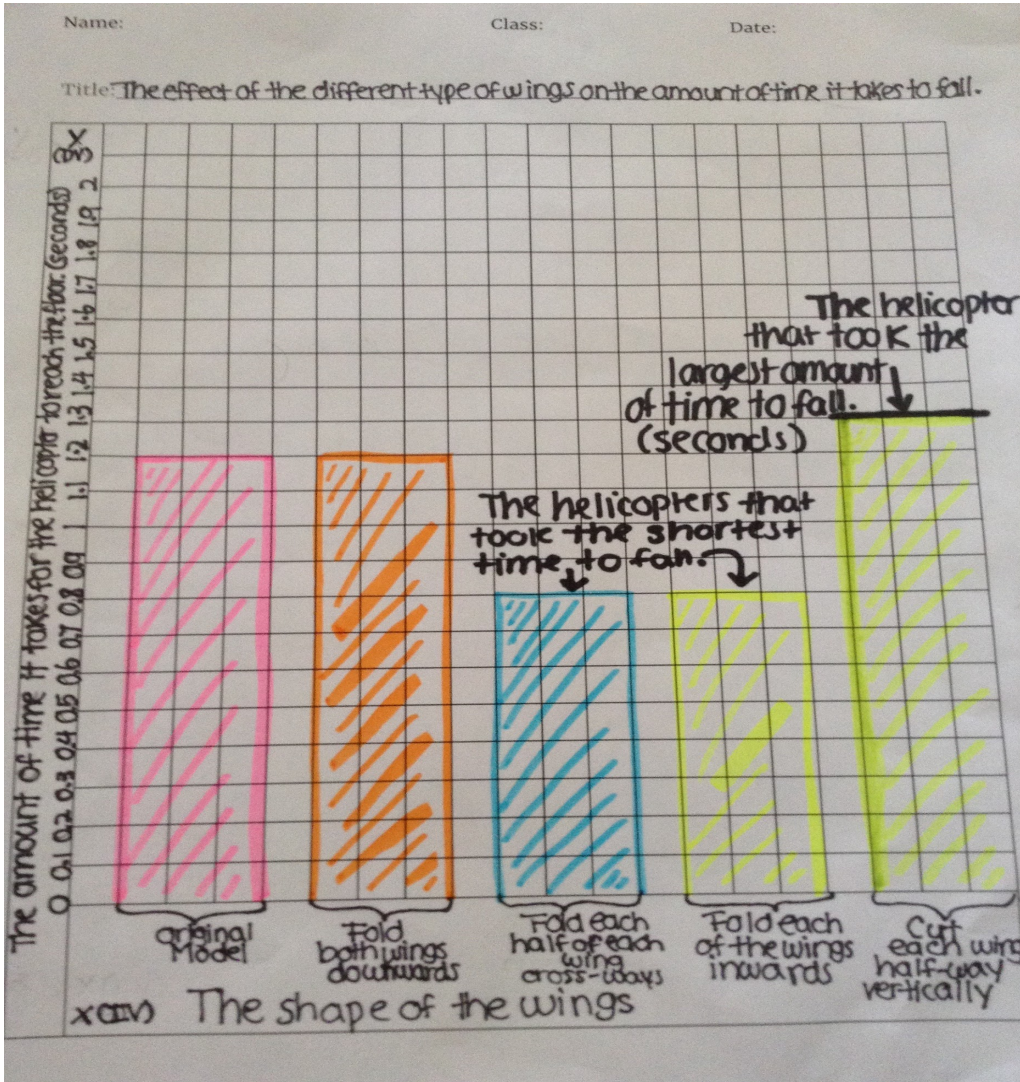 Name: Class: Date:
Title: The effect of the different type of wings on the amount of time it takes to fall.
The amount of time it takes for the helicopter to reach the floor. (seconds)
2
1.9
1.8
1.7
1.6
1.5
1.4
1.3
1.2
1.1
1
0.9
0.8
0.7
0.6
0.5
0.4
0.3
0.2
0.1
0
The helicopter
that took the
largest amount
of time to fall.
(seconds)
The helicopters that
took the shortest
time, to fall.
original
Model
Fold
both wings
downwards
Fold each
half of each
wing
cross-ways
Fold each
of the wings
inwards
Cut
each wing
half-way
vertically
The shape of the wings